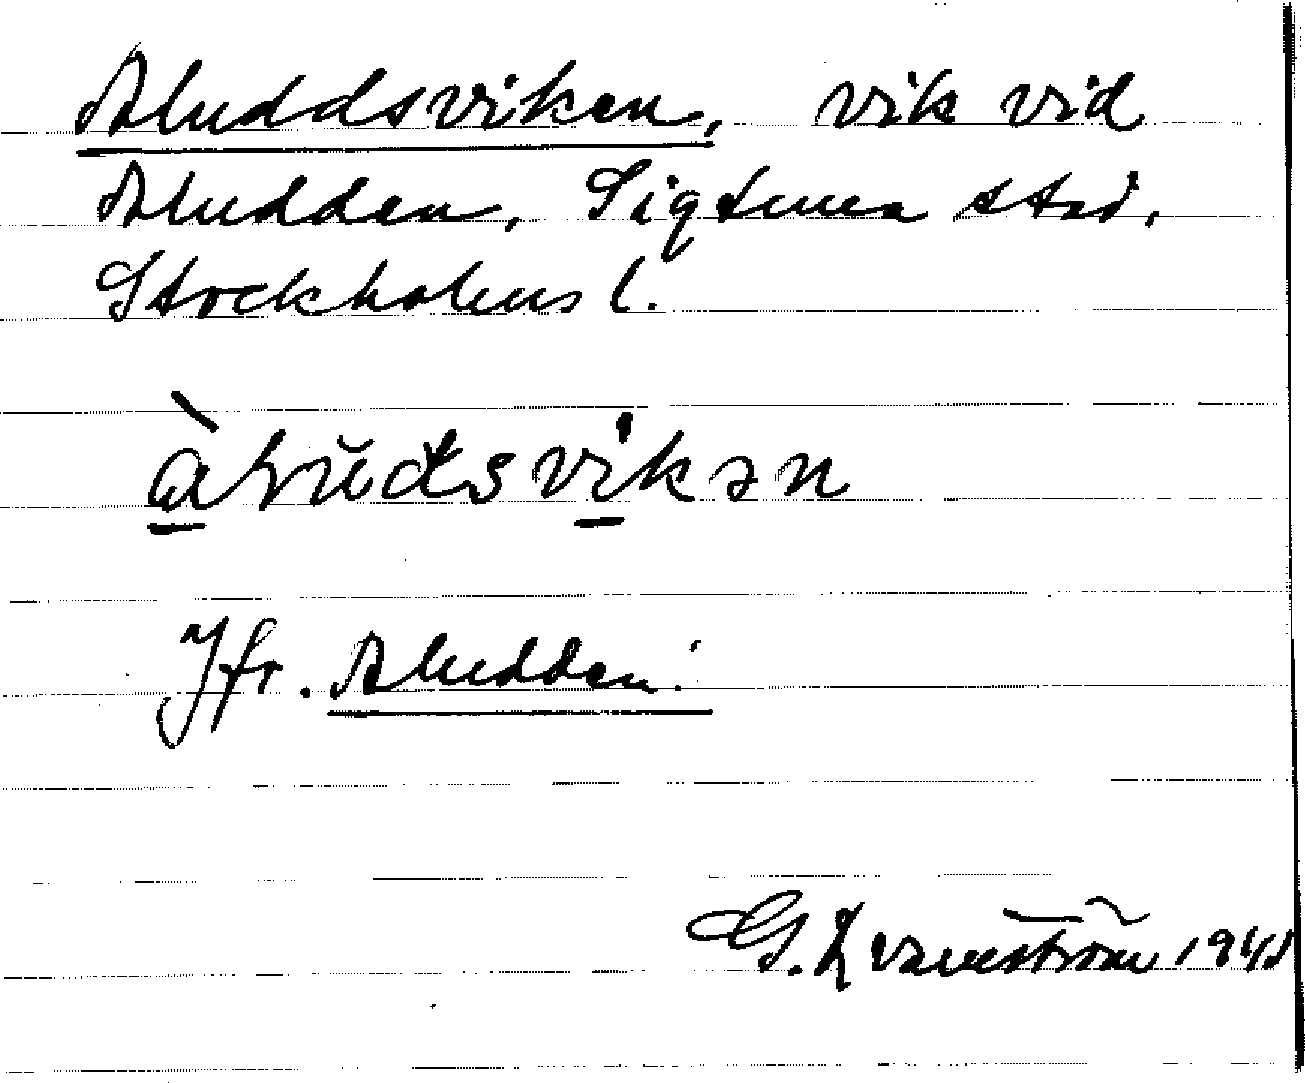 Aluddsviken, vik vid
Aludden, Sigtuna stad,
Stockholms l.
àlŭdsvikən
Jfr. Aludden.
G. Kvarnström